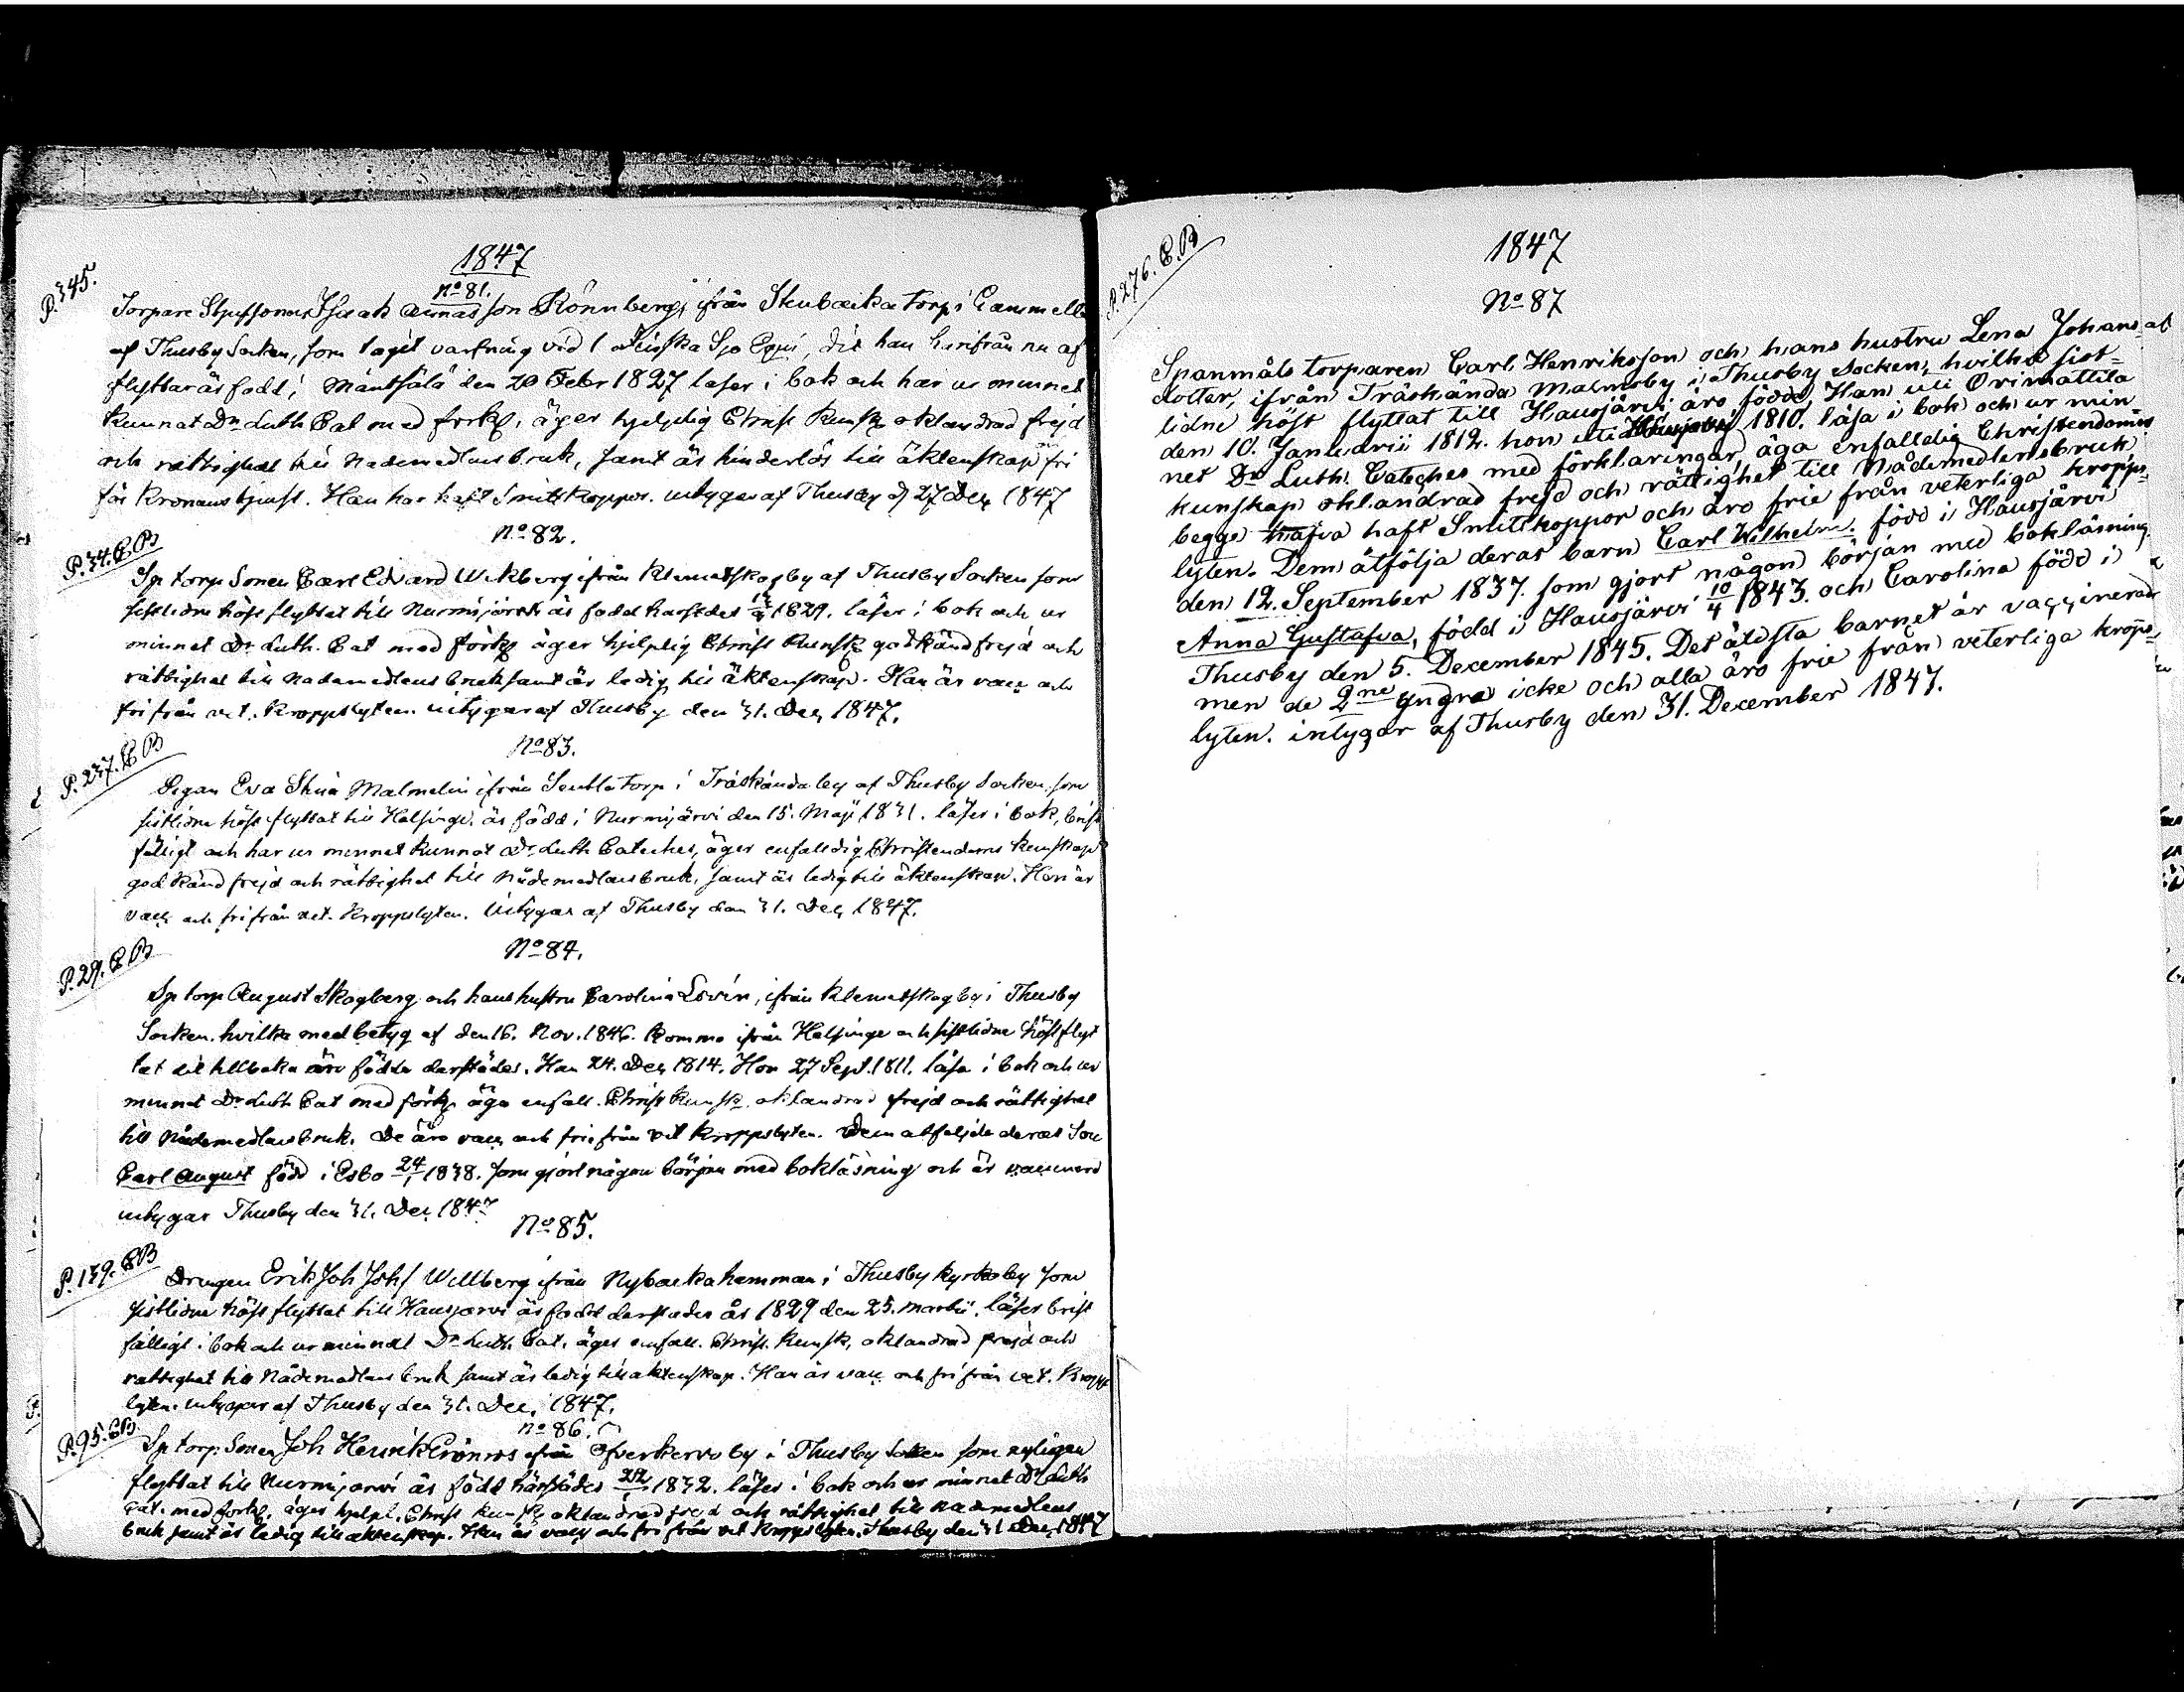 1847
P. 345.
No 81.
Torpare Styfsonen Isaak Rönnberg, ifrån Skubacka torp i Gammelby
af Thusby Socken, som tagit varfning vid 1 Finska Sjö Equi, dit han härifrån nu af
flyttar är född i Mäntsälä den 20 Febr 1827 läser i bok och har ur minnet
kunnat Dr. Luth Cat med förkl, äger hjelplig Christ Kunsk oklandrad frejd
och rättighet till Nådemedlens bruk, samt är hinderlös till äktenskap fri
för Kronans tjenst. Han har haft Smittkoppor. intygar af Thusby d 27 Dec 1847
No 82.
P. 34. C.B
Sp torp Sonen Carl Edvard Wikberg ifrån Klemetskog by af Thusby Socken som
sistlidne höst flyttat till Nurmijärvi är född härstädes 1829. läser i bok och ur
minnet Dr. Luth. Cat med förkl äger hjelplig Christ Kunsk godkänd frejd och
rättighet till Nådemedlens bruk samt är ledig till äktenskap. Han är vacc och
fri från vet. Kroppslyten. intygar af Thusby den 31. Dec 1847.
No 83.
P. 237. C B
Pigan Eva Stina Malmelin ifrån Seutla torp i Träskända by af Thusby Socken, som
sistlidne höst flyttat till Helsinge. är född i Nurmijärvi den 15. Maji 1831. läser i bok, brist
fälligt och har ur minnet kunnat Dr. Luth Cateches, äger enfalldig Christendoms kunskap
god känd frejd och rättighet till Nådemedlens bruk, samt är ledig till äktenskap. Hon är
vacc och fri från vet. Kroppslyten. Intygar af Thusby den 31. Dec 1847.
No 84.
P. 29. C B
Sp torp August Skogberg och hans hustru Carolina Lovén, ifrån Klemetskog by i Thusby
Socken. hvilka med betyg af den 16. Nov. 1846. komma ifrån Helsinge och sistlidne höst flyt
tat dit tillbaka äro födda derstädes. Han 24. Dec 1814. Hon 27 Sept. 1811. läsa i bok och ur
minnet Dr Luth Cat med förkl äga enfall. Christ Kunsk. oklandrad frejd och rättighet
till Nådemedlens bruk. De äro vacc och frie från vet Kroppslyten. Dem åtföljde deras Son
Carl August född i Esbo 1838. som gjort någon början med bokläsning och är vaccinerad
intygar Thusby den 31. Dec 1847
No 85.
P. 139. C B
Drängen Erik Joh Johs Willberg ifrån Nybacka hemman i Thusby Kyrkoby som
sistlidne höst flyttat till Hausjärvi är född derstädes år 1829 den 25. Martii. läser brist
fälligt i bok och ur minnet Dr Luth. Cat. äger enfall. Christ. Kunsk, oklandrad frejd och
rättighet till Nådemedlens bruk samt är ledig till äktenskap. Han är vacc och fri från vet. Kropps
lyten. intygar af Thusby den 31. Dec. 1847.
No 86.
P. 95. C B
Sp torp. Sonen Joh Henrik Grönros ifrån Öfverkervo by i Thusby Socken som nyligen
flyttat till Nurmijärvi är född härstädes 1832. läser i bok och ur minnet Dr Luth
Cat. med förkl. äger hjelpl. Christ Kunsk oklandrad frejd och rättighet till Nådemedlens
bruk samt är ledig till äktenskap. Han är vacc och fri från vet Kroppslyten. Thusby den 31 Dec 1847
1847
P. 276. C.B
No 87
Spanmåls torparen Carl Henriksson och hans hustru Lena Johans
dotter, ifrån Träskända Malmsby i Thusby socken, hvilka sist-
lidne höst flyttat till Hausjärvi äro födde, Han uti Orimattila
den 10. Januarii 1812. hon uti Hausjärvi 1810. läsa i bok och ur min
net Dr Luth. Cateches med förklaringar, äga enfalldig Christendoms
kunskap oklandrad frejd och rättighet till Nådemedlens bruk
begge hafva haft Smittkoppor och äro frie från veterliga kropps
lyten. Dem åtfölja deras barn Carl Wilhelm. född i Hausjärvi
den 12. September 1837. som gjort någon början med bokläsning
Anna Gustafva, född i Hausjärvi 10/4 1843. och Carolina född i
Thusby den 5. December 1845. Det äldsta barnet är vaccinerad
men de 2ne yngra icke och alla äro frie från veterliga kropps-
lyten. intygar af Thusby den 31. December 1847.